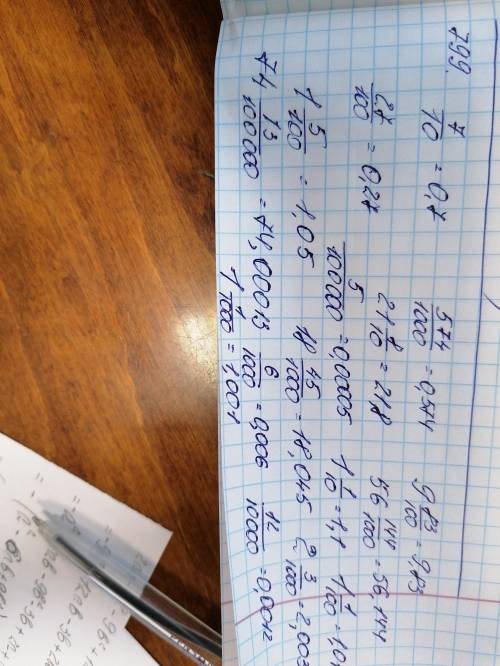 799.
7/10 = 0,7 574/1000 = 0,574 9 83/100 = 9,83
27/100 = 0,27 21 8/10 = 21,8 56 144/1000 = 56,144
1 5/100 = 1,05 5/100000 = 0,00005 1 1/10 = 1,1 1 1/100 = 1,01
74 13/100000 = 74,00013 18 45/1000 = 18,045 2 3/1000 = 2,003
6/1000 = 0,006 12/10000 = 0,0012
1 1/1000 = 1,001